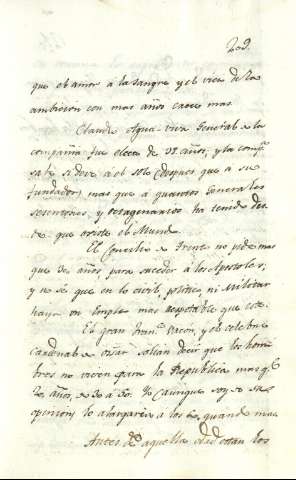 209.
que el amor a la sangre, y el vicio de la
ambicion con mas años crece mas
Claudio Aqua-viva General de la
compañia fue electo de 38 años, y la comp.ª
sabe si deve a el solo (despues que a su
fundador) mas que a quantos Generales
sesentones, y octagenarios ha tenido des
de que existe el Mundo
El Concilio de Trento no pide mas
que 30 años para suceder a los Apostoles;
y no sé que en lo civil, politico, ni militar
haya un empleo mas respetable que este.
El gran Fran.co Bacon, y el celebre
Cardenal de Ossat solian decir que los hom
bres no viven para la Republica mas q.e
20 años, de 30 a 50. Yo (aunque soy de su
opinion) lo alargaria a los 60, quando mas
Antes de aquella edad estan los